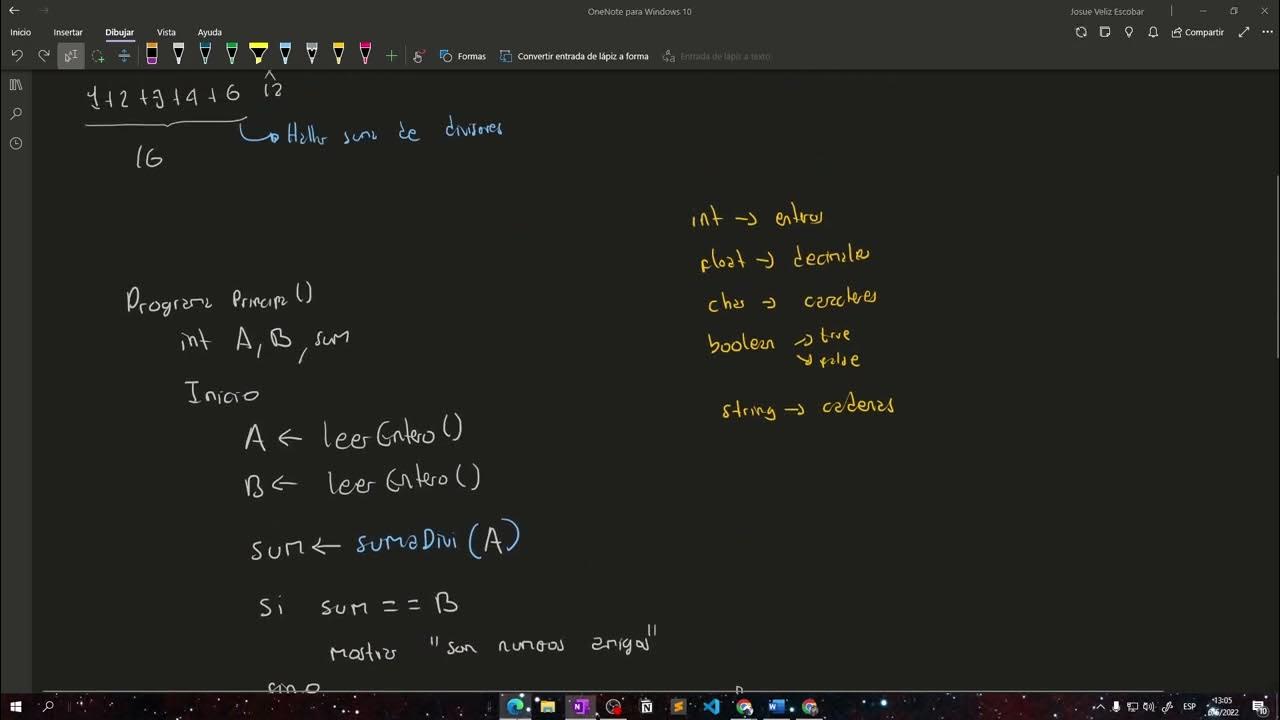 OneNote para Windows 10
Josue Veliz Escobar
Inicio Insertar Dibujar Vista Ayuda
Compartir
Formas
Convertir entrada de lápiz a forma
Entrada de lápiz a texto
12
1+2+3+4+6
Hallar suma de divisores
16
int → enteros
float → decimales
char → caracteres
boolean → true
→ false
string → cadenas
Programa Principal()
int A, B, sum
Inicio
A ← leerEntero()
B ← leerEntero()
sum ← sumaDivi(A)
si sum == B
mostrar "son numeros amigos"
sino
ESP
13:05